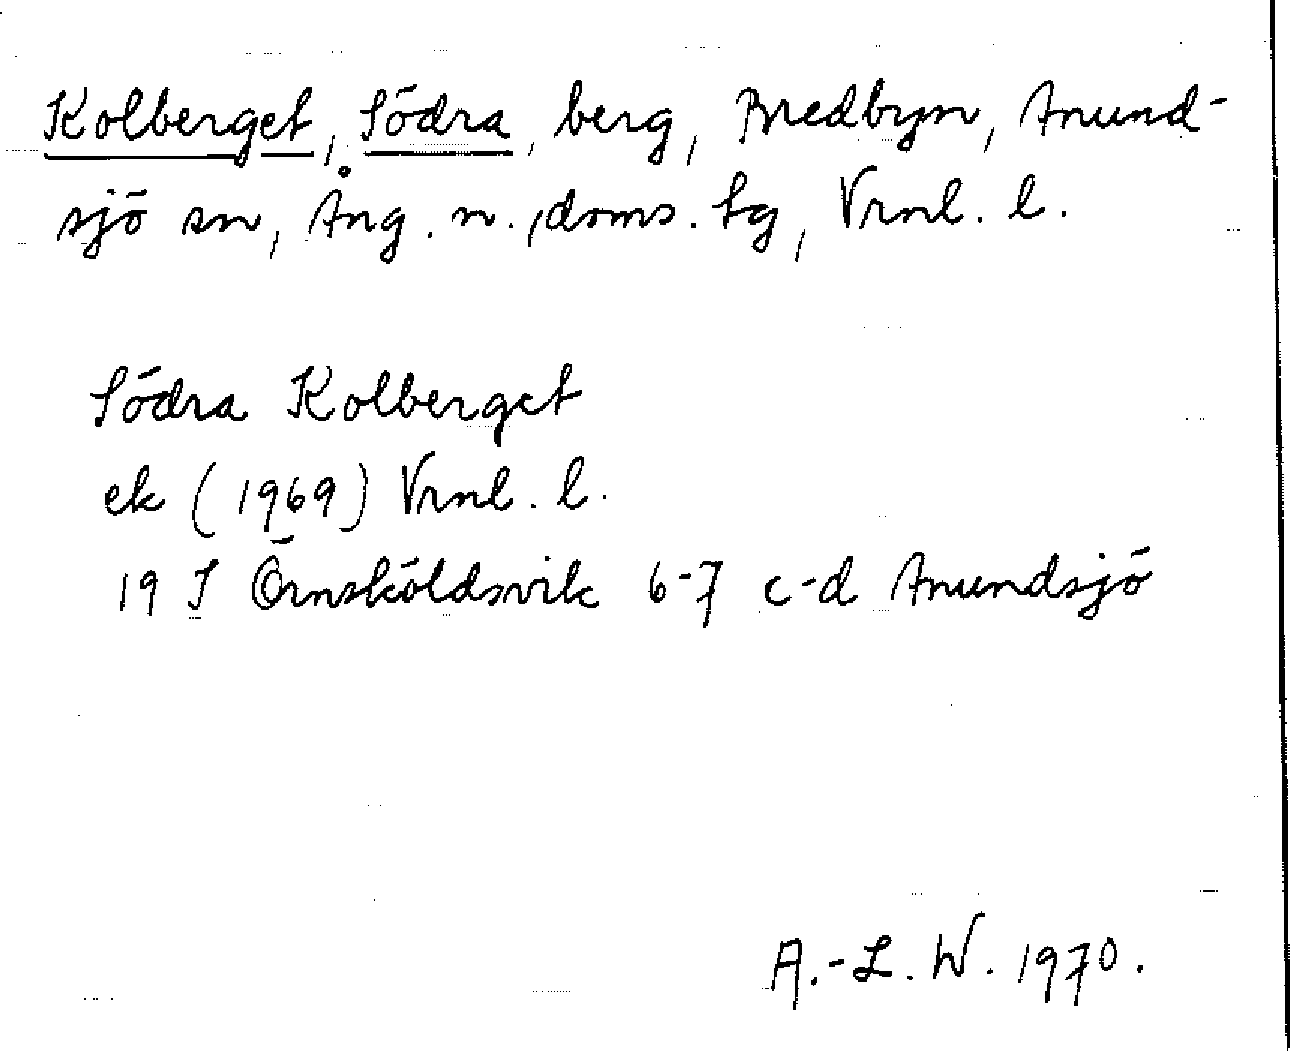 Kolberget, Södra, berg, Bredbyn, Anund-
sjö sn, Ång. n., doms. sg, Vrnl. l.
Södra Kolberget
ek (1969) Vrnl. l.
19 J Örnsköldsvik 6-7 c-d Anundsjö
A.-L. W. 1970.